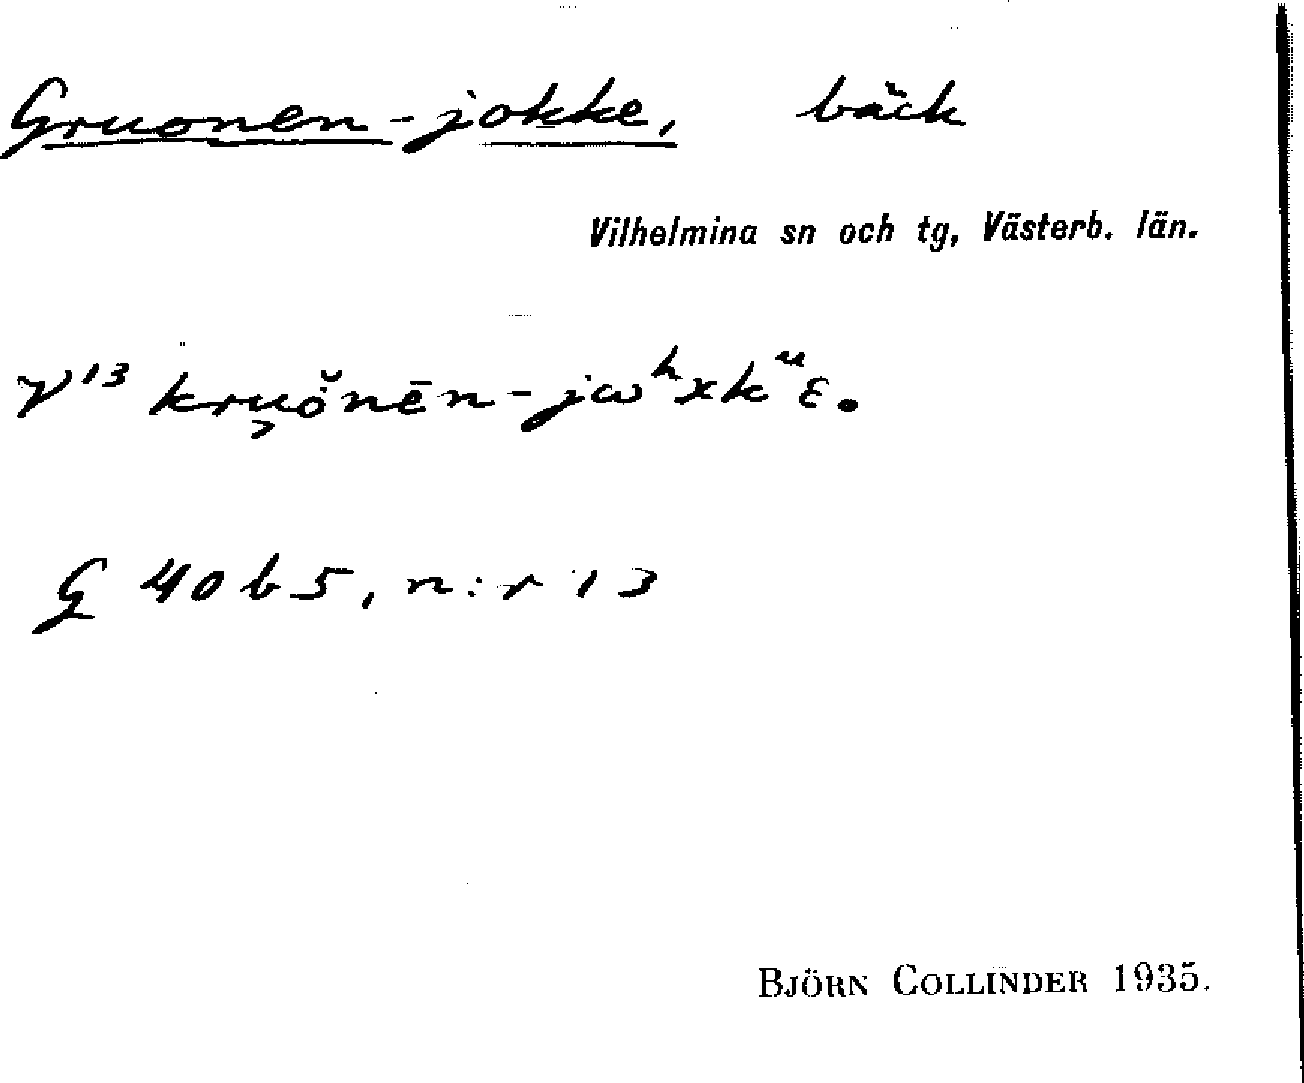 Gruonen-jokke, bäck
Vilhelmina sn och tg, Västerb. län.
V¹³ kru̹ŏ̇nēn-jωʰxkᵘε.
G 40 b 5, n:r 13
BJÖRN COLLINDER 1935.